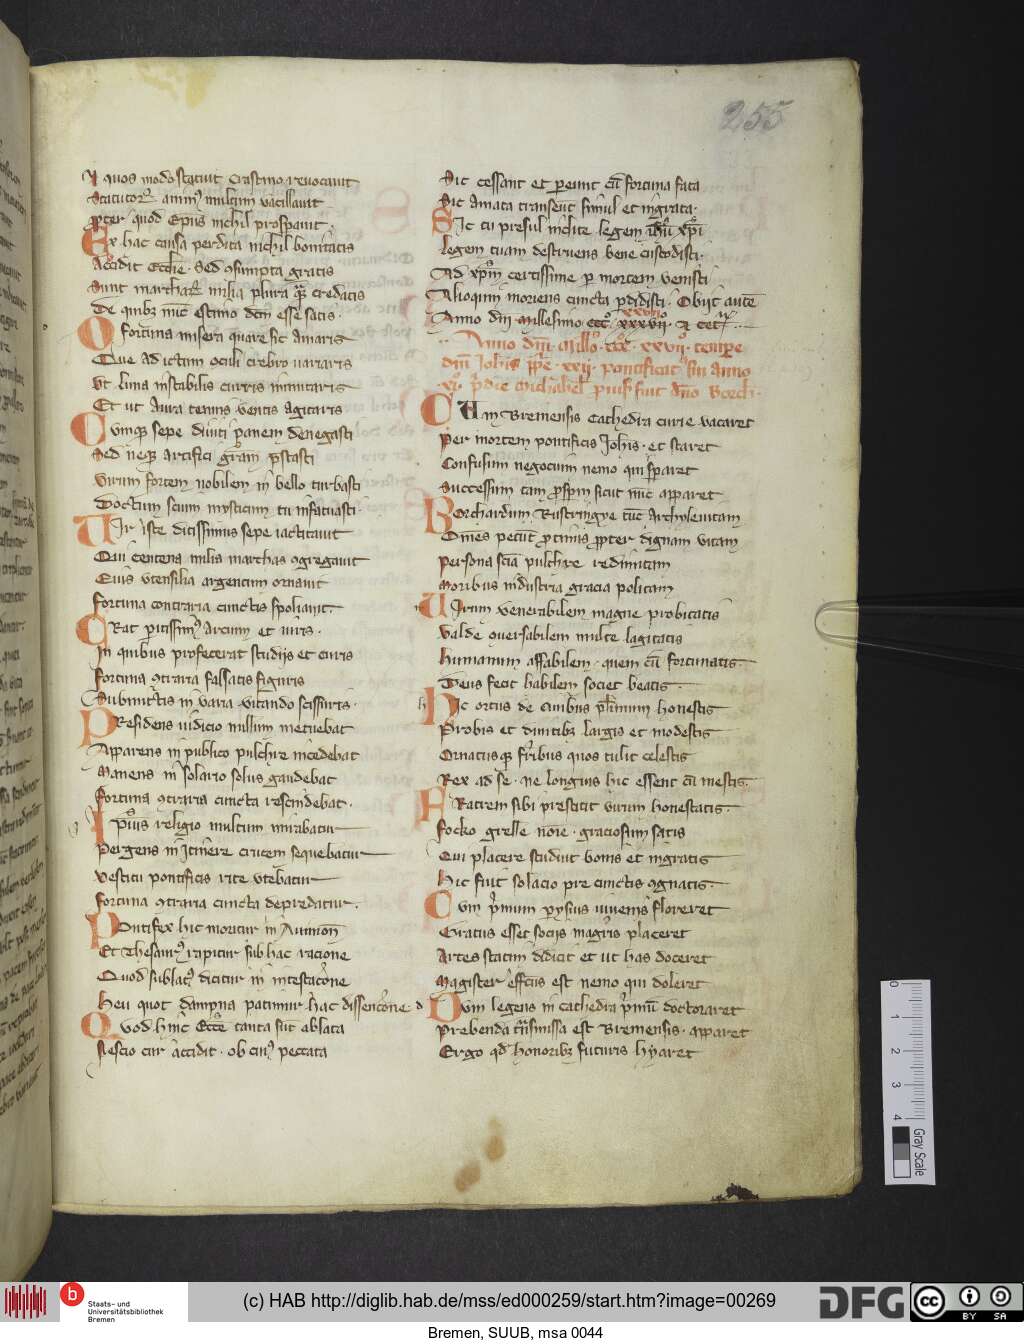 255
In quos modo statuit crastino revocavit
Statutorꝝ animꝰ multum vacillavit
ꝓpter quod Epius nichil prosperavit
Ex hac causa perdita nichil bonitatis
Accidit Ecclie. Sed ꝯsumpta gratis
Sunt marcharꝝ milia plura quam credatis
De quibꝫ nunc estimo dcm esse satis.
O fortuna misera quare sic amaris
Que ad ictum oculi crebro variaris
Ut luna instabilis curris inmitaris
Et ut aura tenuis ventis agitaris
Cumqꝫ sepe diviti panem denegasti
Sed neqꝫ artifici grām prstasti
Virum fortem nobilem in bello turbasti
Doctum scum mysticum tu infatuasti.
Vir iste ditissimus sepe iactitavit
Qui centena milia marchas ꝯgregavit
Cuius utensilia argentum ornavit
fortuna contraria cunctis spoliavit.
Erat peritissimꝰ arcium et iuris.
In quibus profecerat studijs et curis
fortuna ꝯtraria falsatis figuris
Subvinctis in varia vitando scissuris.
Presidens iudicio nullum metuebat
Apparens in publico pulchre incedebat
Manens in solario solus gaudebat
fortuna ꝯtraria cuncta rescindebat.
Ipsius religio multum mirabatur
Pergens in itinere crucem sequebatur
vestitu pontificis rite utebatur
fortuna ꝯtraria cuncta depredatur.
Pontifex hic moritur in Avinion
Et Thesaurꝰ rapitur sub hac racione
Quod sublatꝰ dicitur in intestacōne
Heu quot dampna patimur hac dissencōne.
Quod hinc Eccē tanta sūt ablata
Nescio cur accidit. ob cuiꝰ peccata
Sic cessant et pereunt cū fortuna fata
Sic amata transeunt simul et ingrata.
Sic tu presul inclite legem ihū xp̄i
legem tuam destruens bene custodisti.
Ad xp̄m certissime per mortem venisti
Alioquin moriens cuncta perdidisti. Obijt autē
Anno dni millesimo cccͦ. xxxvii. xxviiͦ et cet
Anno dm̄ milloͦ. ccc. xxvii. tempe
dm̄ Johis pp̄e. xxii. pontificatꝰ sui anno
xi. p̄die michahel. prius fuit dn̄o Borch.
Cum Bremensis cathedra curie vacaret
Per mortem pontificis Johis. et staret
Confusum negocium nemo qui speraret
Successum tam prosperum sicut nūc apparet
Borchardum Rustringye tūc archylevitam
Omnes petunt protinus ꝓpter dignam vitam
Persona sciā pulchre redimitam
Moribus industria gracia politam
Virum venerabilem magne probitatis
Valde ꝯversabilem multe largitatis
Humanum affabilem. quem cū fortunatis.
Deus fecit habilem societ beatis.
Hic ortus de civibus plurimum honestis
Probis et divitibꝫ largis et modestis
Ornatusqꝫ fratribus quos tulit celestis
Rex ad se. ne longius hic essent cū mestis.
Fratrem sibi prestitit virum honestatis.
focko grelle noīe. graciosum satis
Cui placere studuit bonis et ingratis
Hic fuit solacio pre cunctis ꝯgnatis.
Cum primum Parysius iuvenis floreret
Gratus esset socijs magistris placeret
Artes statim didicit et ut has doceret
Magister effectus est nemo qui doleret
Dum legens in cathedra primū doctoraret
Prebenda trāsmissa est Bremensis. apparet
Ergo qd honoribꝫ futuris hyaret
0 1 2 3 4
Gray Scale
b Staats- und
Universitätsbibliothek
Bremen
(c) HAB http://diglib.hab.de/mss/ed000259/start.htm?image=00269
DFG
cc BY SA
Bremen, SUUB, msa 0044